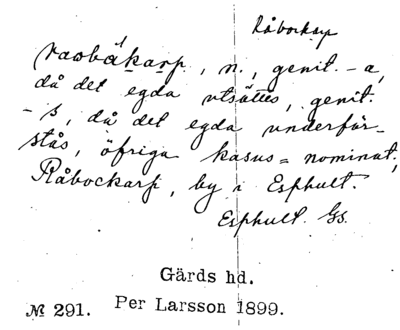 Råbockarp
raobákarp, n., genit. -a,
då det egda utsättes, genit.
-s, då det egda underför-
stås, öfriga kasus = nominat.,
Råbockarp, by i Esphult.
Esphult. Gs.
Gärds hd.
№ 291. Per Larsson 1899.